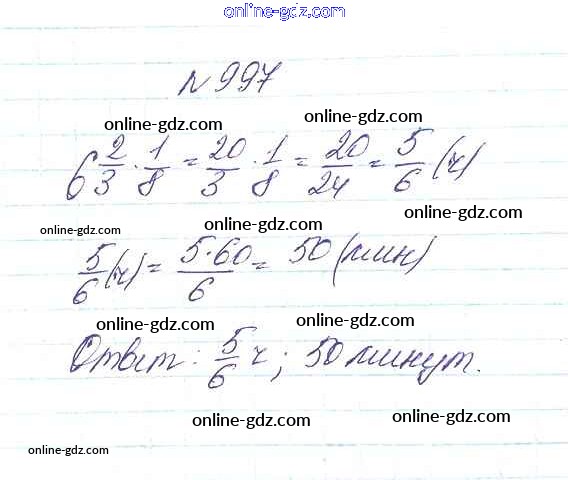 online-gdz.com
№ 997
online-gdz.com online-gdz.com
6 2/3 · 1/8 = 20/3 · 1/8 = 20/24 = 5/6 (ч)
online-gdz.com online-gdz.com online-gdz.com
5/6 (ч) = 5·60/6 = 50 (мин)
online-gdz.com online-gdz.com
Ответ: 5/6 ч; 50 минут.
online-gdz.com online-gdz.com
online-gdz.com